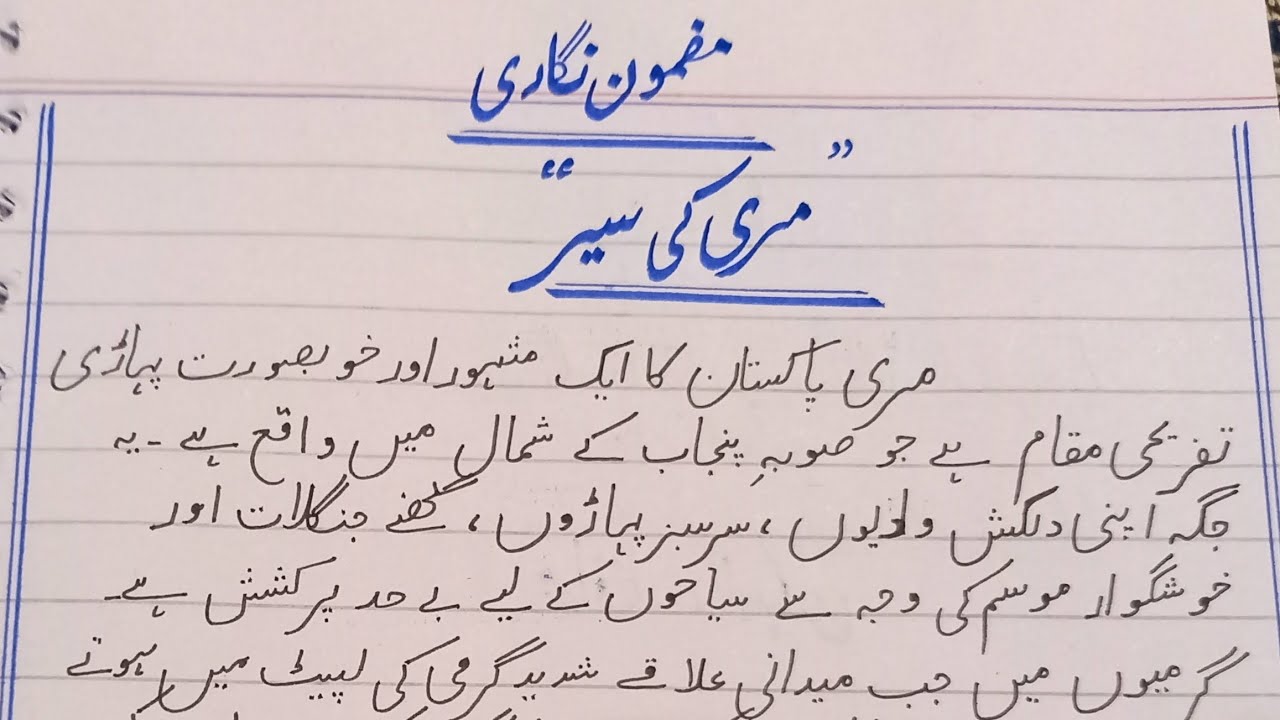 مضمون نگاری
”مری کی سیر“
مری پاکستان کا ایک مشہور اور خوبصورت پہاڑی
تفریحی مقام ہے جو صوبہِ پنجاب کے شمال میں واقع ہے ۔ یہ
جگہ اپنی دلکش وادیوں ، سرسبز پہاڑوں ، گھنے جنگلات اور
خوشگوار موسم کی وجہ سے سیاحوں کے لیے بے حد پرکشش ہے۔
گرمیوں میں جب میدانی علاقے شدید گرمی کی لپیٹ میں ہوتے